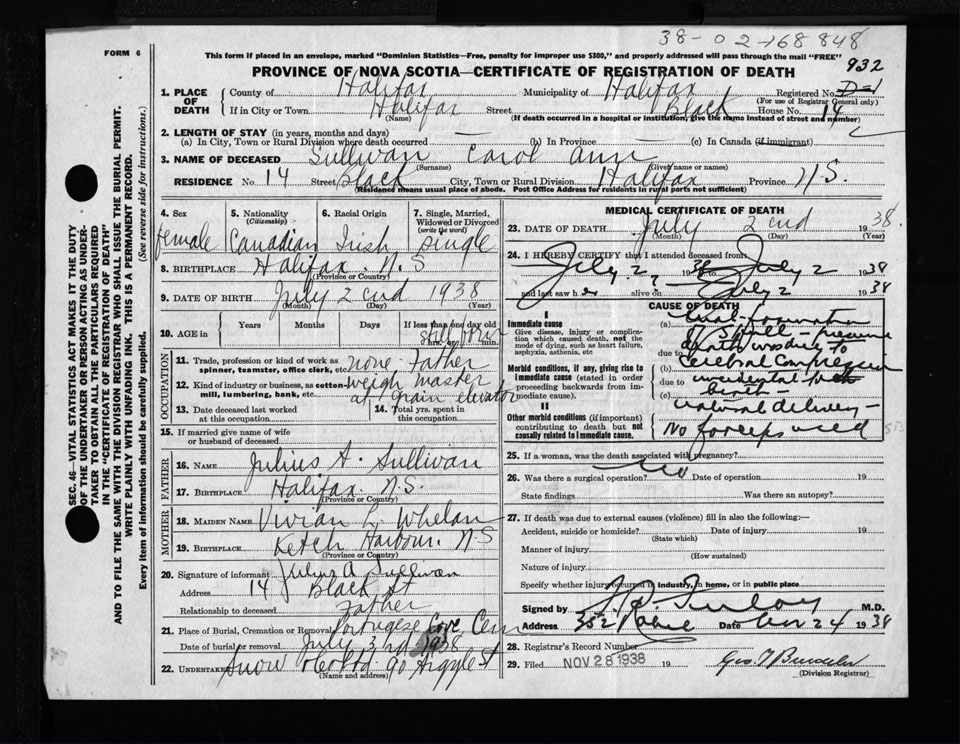 38-02-168848
FORM 6
This form if placed in an envelope, marked "Dominion Statistics—Free, penalty for improper use $300," and properly addressed will pass through the mail "FREE"
932
PROVINCE OF NOVA SCOTIA—CERTIFICATE OF REGISTRATION OF DEATH
1. PLACE OF DEATH
County of Halifax Municipality of Halifax Registered No. D-1
(For use of Registrar General only)
If in City or Town Halifax Street Black House No. 14
(Name) (If death occurred in a hospital or institution, give the name instead of street and number)
2. LENGTH OF STAY (in years, months and days)
(a) In City, Town or Rural Division where death occurred — (b) In Province — (c) In Canada (if immigrant)
3. NAME OF DECEASED Sullivan Carol Ann
(Surname) (Given name or names)
RESIDENCE No. 14 Street Black City, Town or Rural Division Halifax Province N.S.
(Residence means usual place of abode. Post Office Address for residents in rural parts not sufficient)
4. Sex female
5. Nationality (Citizenship) Canadian
6. Racial Origin Irish
7. Single, Married, Widowed or Divorced (write the word) single
8. BIRTHPLACE Halifax N.S
(Province or Country)
9. DATE OF BIRTH July 2nd 1938
(Month) (Day) (Year)
10. AGE in Years Months Days If less than one day old
stillborn
hrs. or min.
OCCUPATION
11. Trade, profession or kind of work as spinner, teamster, office clerk, etc. none - Father
12. Kind of industry or business, as cotton mill, lumbering, bank, etc. weigh master
at grain elevator
13. Date deceased last worked at this occupation
14. Total yrs. spent in this occupation
15. If married give name of wife or husband of deceased
FATHER
16. NAME Julius A. Sullivan
17. BIRTHPLACE Halifax N.S.
(Province or Country)
MOTHER
18. MAIDEN NAME Vivian L. Whelan
19. BIRTHPLACE Ketch Harbour. N.S
(Province or Country)
20. Signature of informant Julius A Sullivan
Address 14 Black St
Relationship to deceased Father
21. Place of Burial, Cremation or Removal Portugese Cove Cem
Date of burial or removal July 3rd 1938
22. UNDERTAKER Snow 90 Argyle St
(Name and address)
MEDICAL CERTIFICATE OF DEATH
23. DATE OF DEATH July 2nd 1938
(Month) (Day) (Year)
24. I HEREBY CERTIFY that I attended deceased from
July 2 1938 to July 2 1938
and last saw h er alive on July 2 1938
CAUSE OF DEATH
I
Immediate cause
Give disease, injury or complication which caused death, not the mode of dying, such as heart failure, asphyxia, asthenia, etc
Morbid conditions, if any, giving rise to immediate cause (stated in order proceeding backwards from immediate cause)
II
Other morbid conditions (if important) contributing to death but not causally related to immediate cause.
(a) formation
of Skull -
due to death was due to
(b) Cerebral Compression
due to incidental to
(c) birth
natural delivery -
No forceps used
25. If a woman, was the death associated with pregnancy?
26. Was there a surgical operation? No Date of operation 19
State findings Was there an autopsy?
27. If death was due to external causes (violence) fill in also the following:—
Accident, suicide or homicide? Date of injury 19
(State which)
Manner of injury
(How sustained)
Nature of injury
Specify whether injury occurred in industry, in home, or in public place
Signed by Finlay M.D.
Address 352 Robie Date Nov 24 1938
28. Registrar's Record Number
29. Filed NOV 28 1938 19
(Division Registrar)
SEC. 46—VITAL STATISTICS ACT MAKES IT THE DUTY
OF THE UNDERTAKER OR PERSON ACTING AS UNDERTAKER TO OBTAIN ALL THE PARTICULARS REQUIRED
IN THE "CERTIFICATE OF REGISTRATION OF DEATH"
AND TO FILE THE SAME WITH THE DIVISION REGISTRAR WHO SHALL ISSUE THE BURIAL PERMIT.
WRITE PLAINLY WITH UNFADING INK. THIS IS A PERMANENT RECORD.
Every item of information should be carefully supplied. (See reverse side for instructions.)